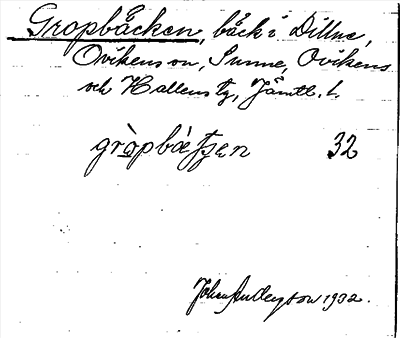 Gropbäcken, bäck i Dillne,
Ovikens sn, Sunne, Ovikens
och Hallens tg, Jämtl. l.
gròpbäʦ̌ʦ̌en 32
Johan Nutley son 1932.